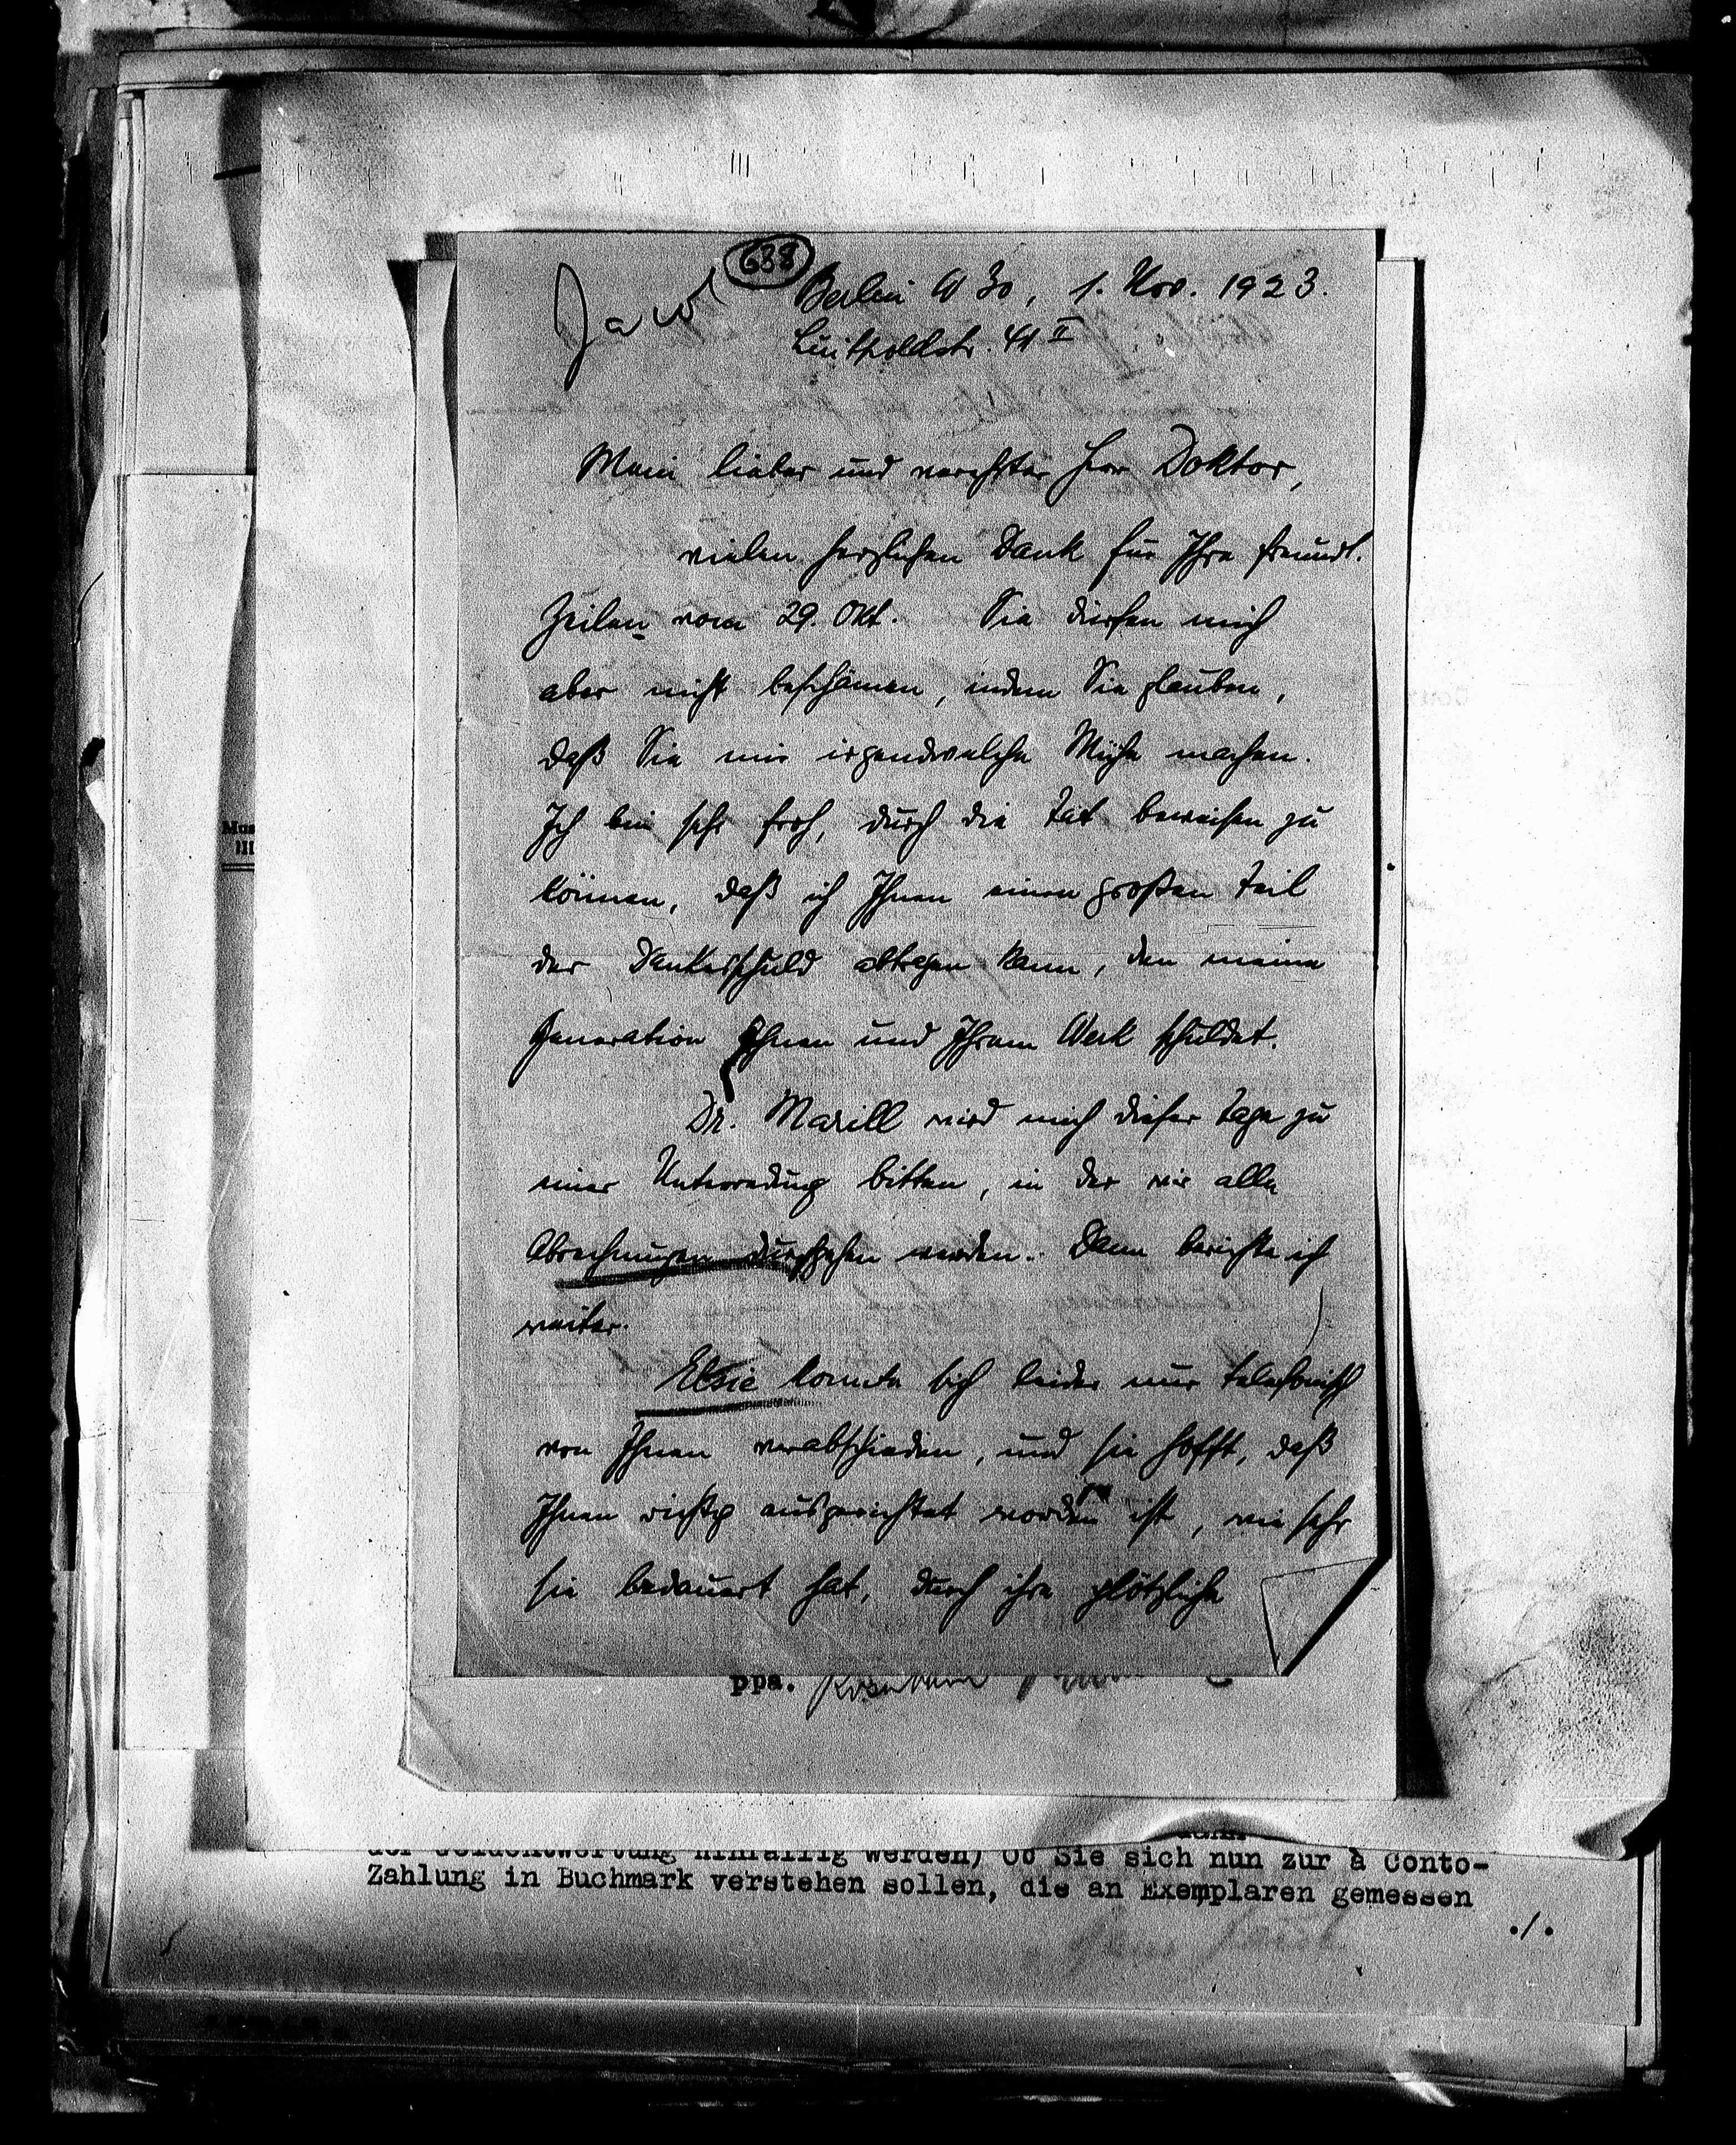 638
Berlin W 30, 1. Nov. 1923.
Luitpoldstr. 41 II
Mein lieber und verehrter Herr Doktor,
vielen herzlichen Dank für Ihre freundl.
Zeilen vom 29. Okt. Sie dürfen mich
aber nicht beschämen, indem Sie glauben,
daß Sie mir irgendwelche Mühe machen.
Ich bin sehr froh, durch die Tat beweisen zu
können, daß ich Ihnen einen großen Teil
der Dankesschuld abtragen kann, den meine
Generation Ihnen und Ihrem Werk schuldet.
Dr. Marill wird mich dieser Tage zu
einer Unterredung bitten, in der wir alle
Abrechnungen durchgehen werden. Dann berichte ich
weiter.
Elsie konnte sich leider nur telefonisch
von Ihnen verabschieden, und sie hofft, daß
Ihnen richtig ausgerichtet worden ist, wie sehr
sie bedauert hat, durch ihre plötzliche
ppa.
der Geldentwertung hinfällig werden) Ob Sie sich nun zur à Conto-
Zahlung in Buchmark verstehen sollen, die an Exemplaren gemessen
./.